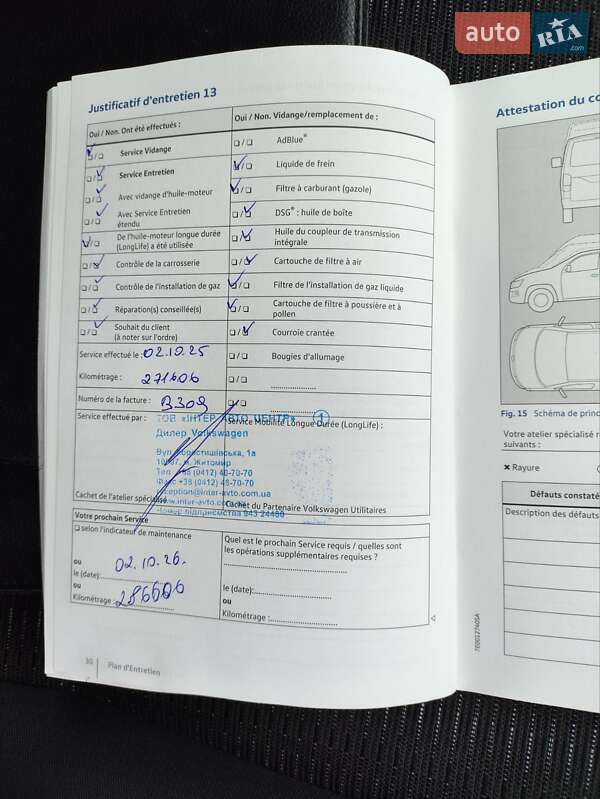 auto RIA.com
Justificatif d'entretien 13
Oui / Non. Ont été effectués :
Oui / Non. Vidange/remplacement de :
Service Vidange
AdBlue®
Service Entretien
Liquide de frein
Avec vidange d'huile-moteur
Filtre à carburant (gazole)
Avec Service Entretien
étendu
DSG® : huile de boîte
De l'huile-moteur longue durée
(LongLife) a été utilisée
Huile du coupleur de transmission
intégrale
Contrôle de la carrosserie
Cartouche de filtre à air
Contrôle de l'installation de gaz
Filtre de l'installation de gaz liquide
Réparation(s) conseillée(s)
Cartouche de filtre à poussière et à
pollen
Souhait du client
(à noter sur l'ordre)
Courroie crantée
Service effectué le : 02.10.25
Bougies d'allumage
Kilométrage : 271606
Numéro de la facture : 3309
Service effectué par :
Service Mobilité Longue Durée (LongLife) :
ТОВ «ІНТЕР АВТО ЦЕНТР» 1
Дилер Volkswagen
1а
м. Житомир
Тел. +38 (0412) 48-70-70
Факс +38 (0412) 48-70-70
reception@inter-avto.com.ua
www.inter-avto.com
Номер підприємства 943 24480
Cachet de l'atelier spécialisé
Cachet du Partenaire Volkswagen Utilitaires
Votre prochain Service
selon l'indicateur de maintenance
Quel est le prochain Service requis / quelles sont
les opérations supplémentaires requises ?
ou
le (date): 02.10.26.
le (date):
ou
ou
Kilométrage : 286606
Kilométrage :
30 Plan d'Entretien
Attestation du co
Fig. 15 Schéma de princ
Votre atelier spécialisé r
suivants :
Rayure
Défauts constaté
Description des défauts
7E0012740SA